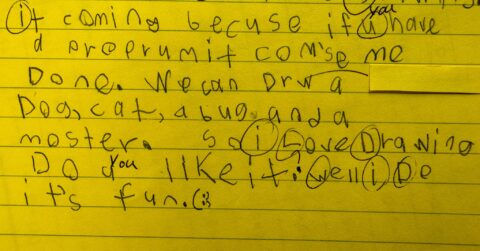 it coming becuse if you have
d proprumit com'se me
Done. We can Drw a
Dog, cat, a bug, and a
moster. So i Love Drawing
Do you like it. Well i Do
it's fun. (: